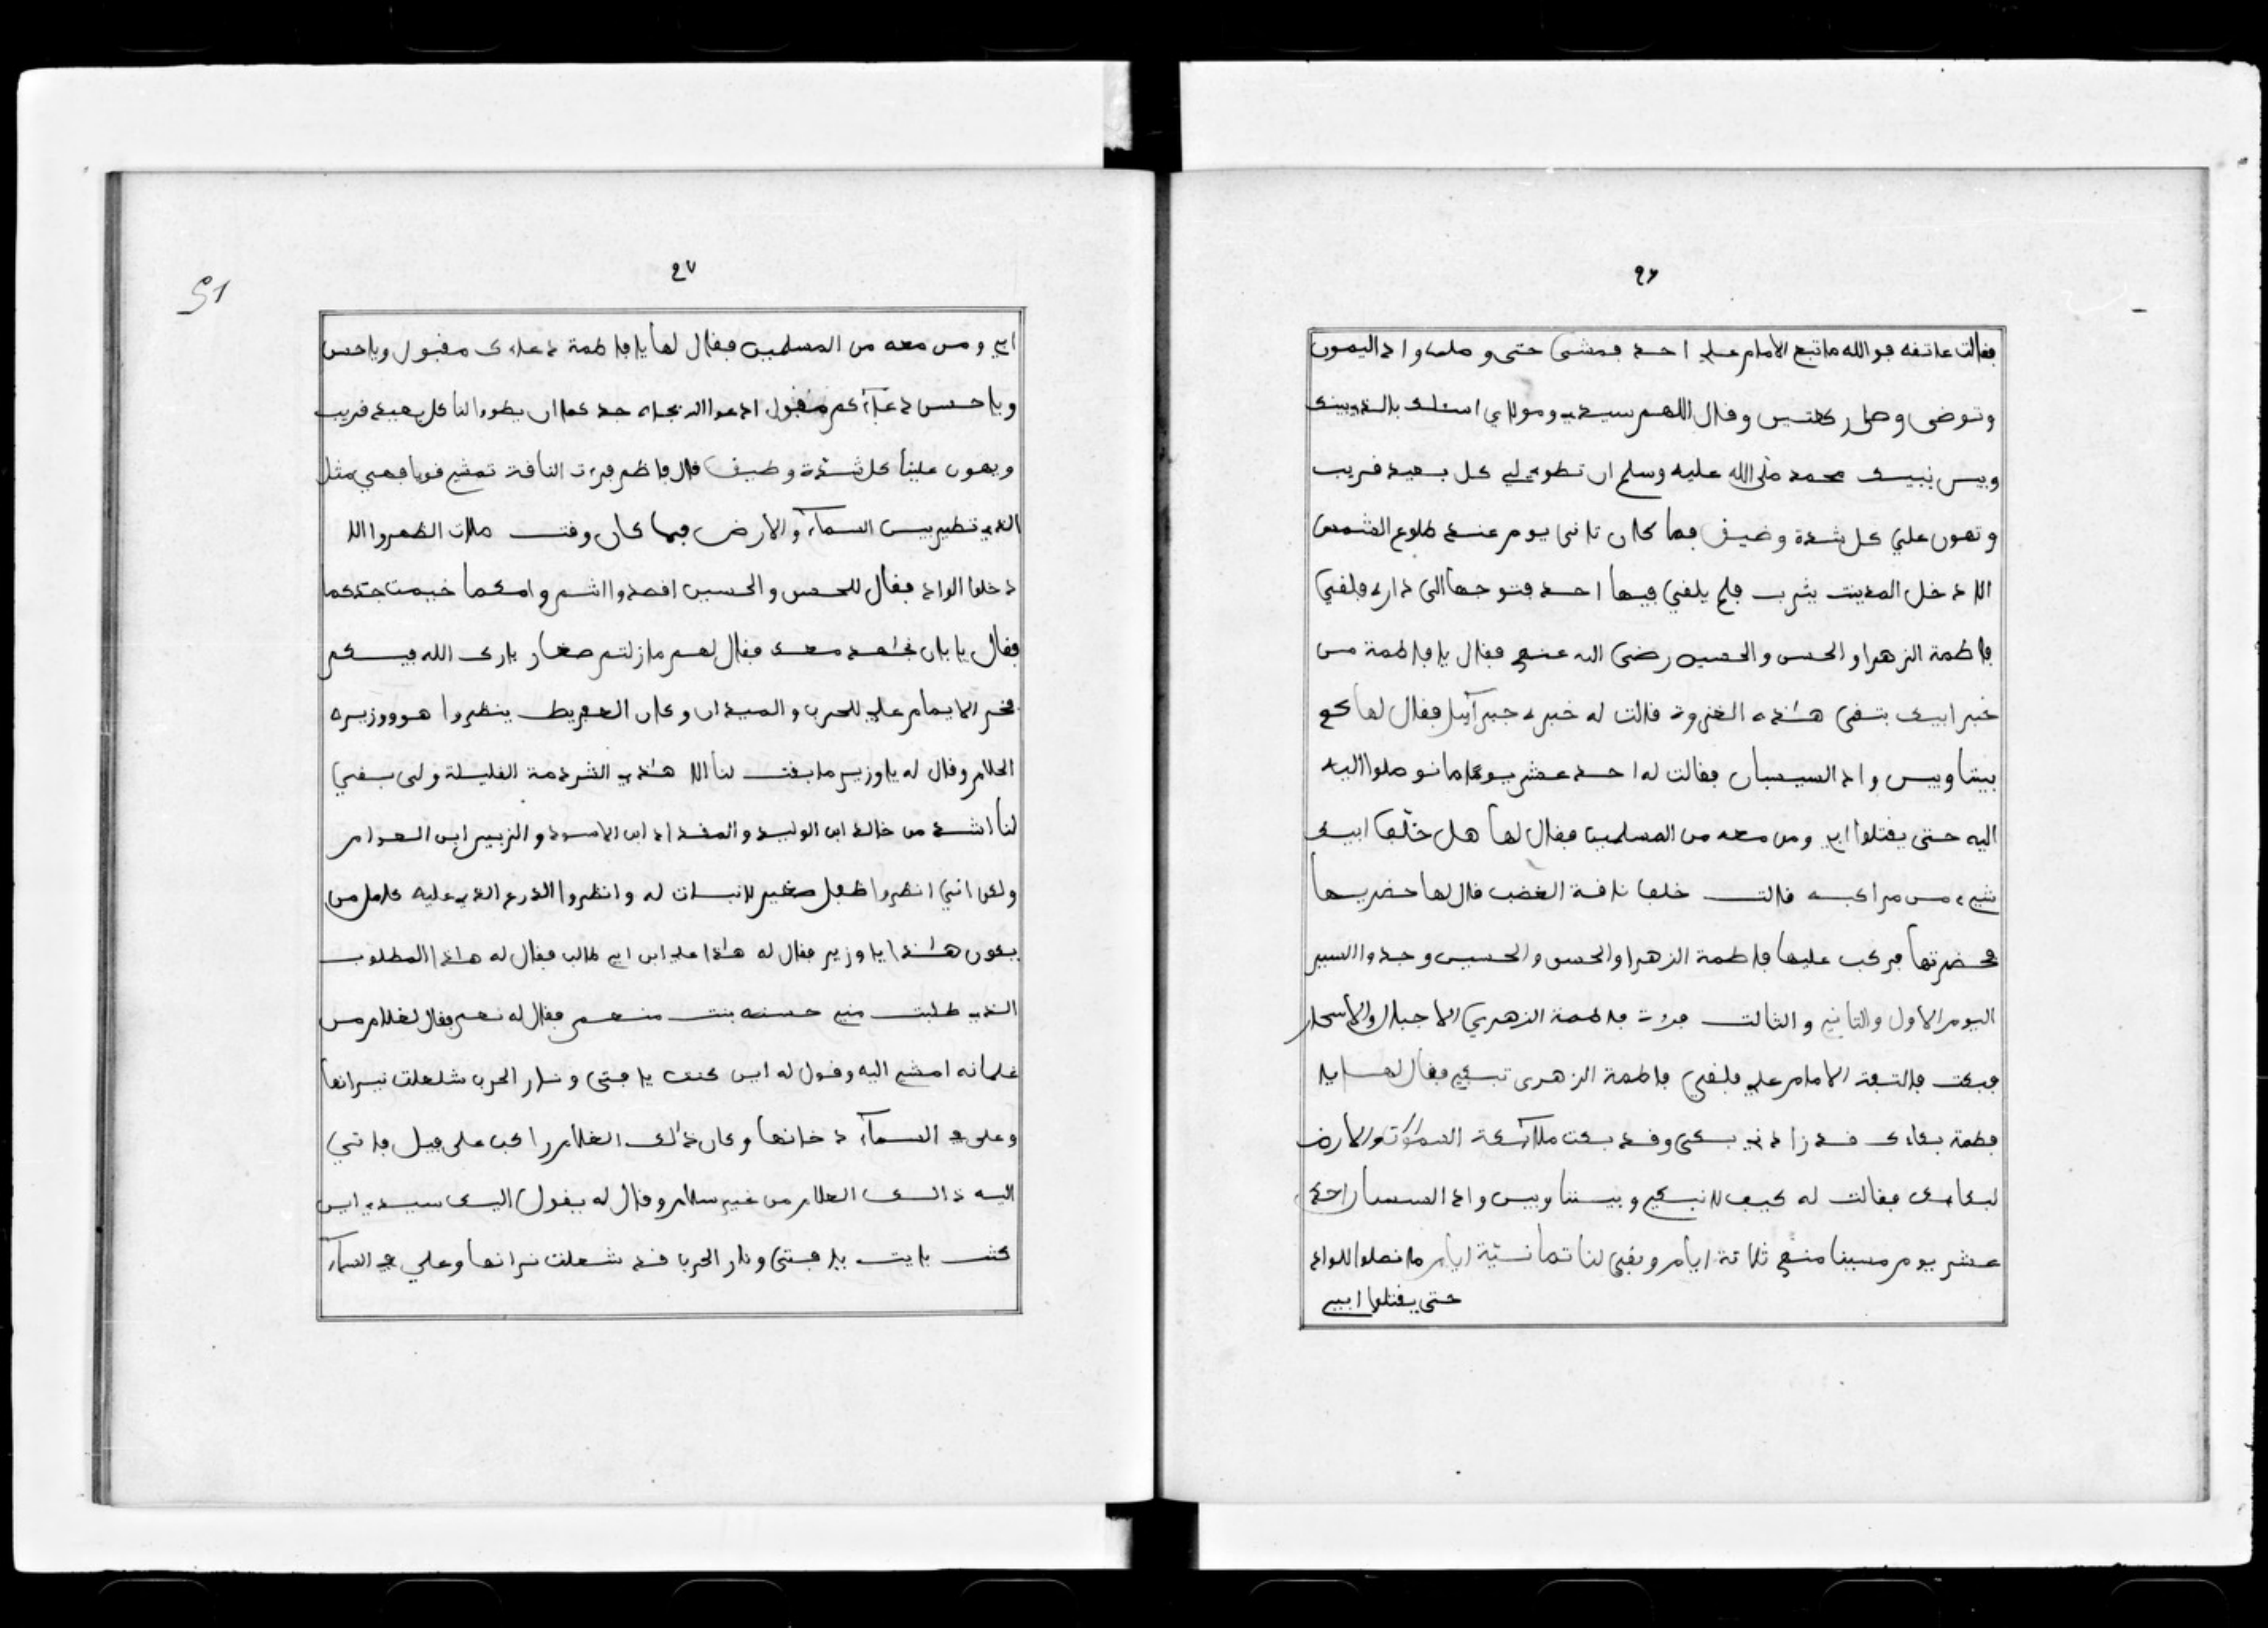 ٢٦
فقالت عاتقه فوالله ماتبع الامام علي احد فمشى حتى وصلى واد اليمون
وتوضى وصلى ركعتين وقال اللهم سيدي ومولاي اسئلك بالذي بينك
وبين نبيك محمد صلى الله عليه وسلم ان تطوي لي كل بعيد قريب
وتهون علي كل شدة وضيق فما كان ثاني يوم عند طلوع الشمس
الا دخل المدينت يثرب فلم يلقي فيها احد فتوجها الى داره فلقي
فاطمة الزهرا والحسن والحسين رضى الله عنهم فقال يا فاطمة من
خبر ابيك بتقى هذه الغزوة قالت له خبره جبرآيل فقال لها كم
بيننا وبين واد السيسبان فقالت له احد عشر يوم ما نوصلوا اليه
اليه حتى يقتلوا ابي ومن معه من المسلمين فقال لها هل خلف ابيك
شيء من مراكبه قالت خلف ناقة الغضب قال لها حضريها
فحضرتها فركب عليها فاطمة الزهرا والحسن والحسين وجدوا السير
اليوم الاول والثاني والثالث فرات فاطمة الزهرى الا جبال والاسحار
فبكت فالتفة الامام علي فلقي فاطمة الزهرى تبكي فقال لها يا
فطمة بكاءك قد زادني بكى وقد بكت ملآئكة السموات والارض
لبكاءك فقالت له كيف لا نبكي وبيننا وبين واد السسبان احد
عشر يوم مسينا منهم ثلاثة ايام وبقى لنا ثمانية ايام ما نصلوا للواد
حتى يقتلوا ابي
٢٧
51
ابي ومن معه من المسلمين فقال لها يا فاطمة دعاءك مقبول ويا حسن
ويا حسين دعآءكم مقبول ادعوا الله بجاه جدكما ان يطوا لنا كل بعيد قريب
ويهون علينا كل شدة وضيق قال فاطم فرءت الناقة تمشي قويا فهي مثل
الذي تطير بين السمآء والارض فما كان وقت صلات الظهر والا
دخلوا الواد فقال للحسن والحسين اقصدوا انتم وامكما خيمت جدكما
فقال يا بان نجاهد معك فقال لهم مازلتم صغار بارك الله فيكم
فخر الايمام علي للحرب والميدان وكان العفريط ينظروا هو ووزيره
الحلام وقال له يا وزير ما بقت لنا الا هذه الشردمة القليلة ولى بقي
لنا اشد من خالد ابن الوليد والمقداد ابن الاسود والزبير ابن العوام
ولكن انني انظروا طفل صغير لانبات له وانظروا الدرع الذي عليه كامل من
يكون هذا يا وزير فقال له هذا علي ابن ابي طالب فقال له هذا المطلوب
الذي طلبت مني حسنه بنت منهم فقال له نعم فقال لغلام من
غلمانه امشي اليه وقول له اين كنت يا فتى ونار الحرب شلعلت نيرانها
وعلى في السمآء دخانها وكان ذلك الغلام راكب على فيل فاتي
اليه ذالك الغلام من غير سلام وقال له يقول اليك سيدي اين
كنت يايت يا فتى ونار الحرب قد شعلت نرانها وعلي في السمآء